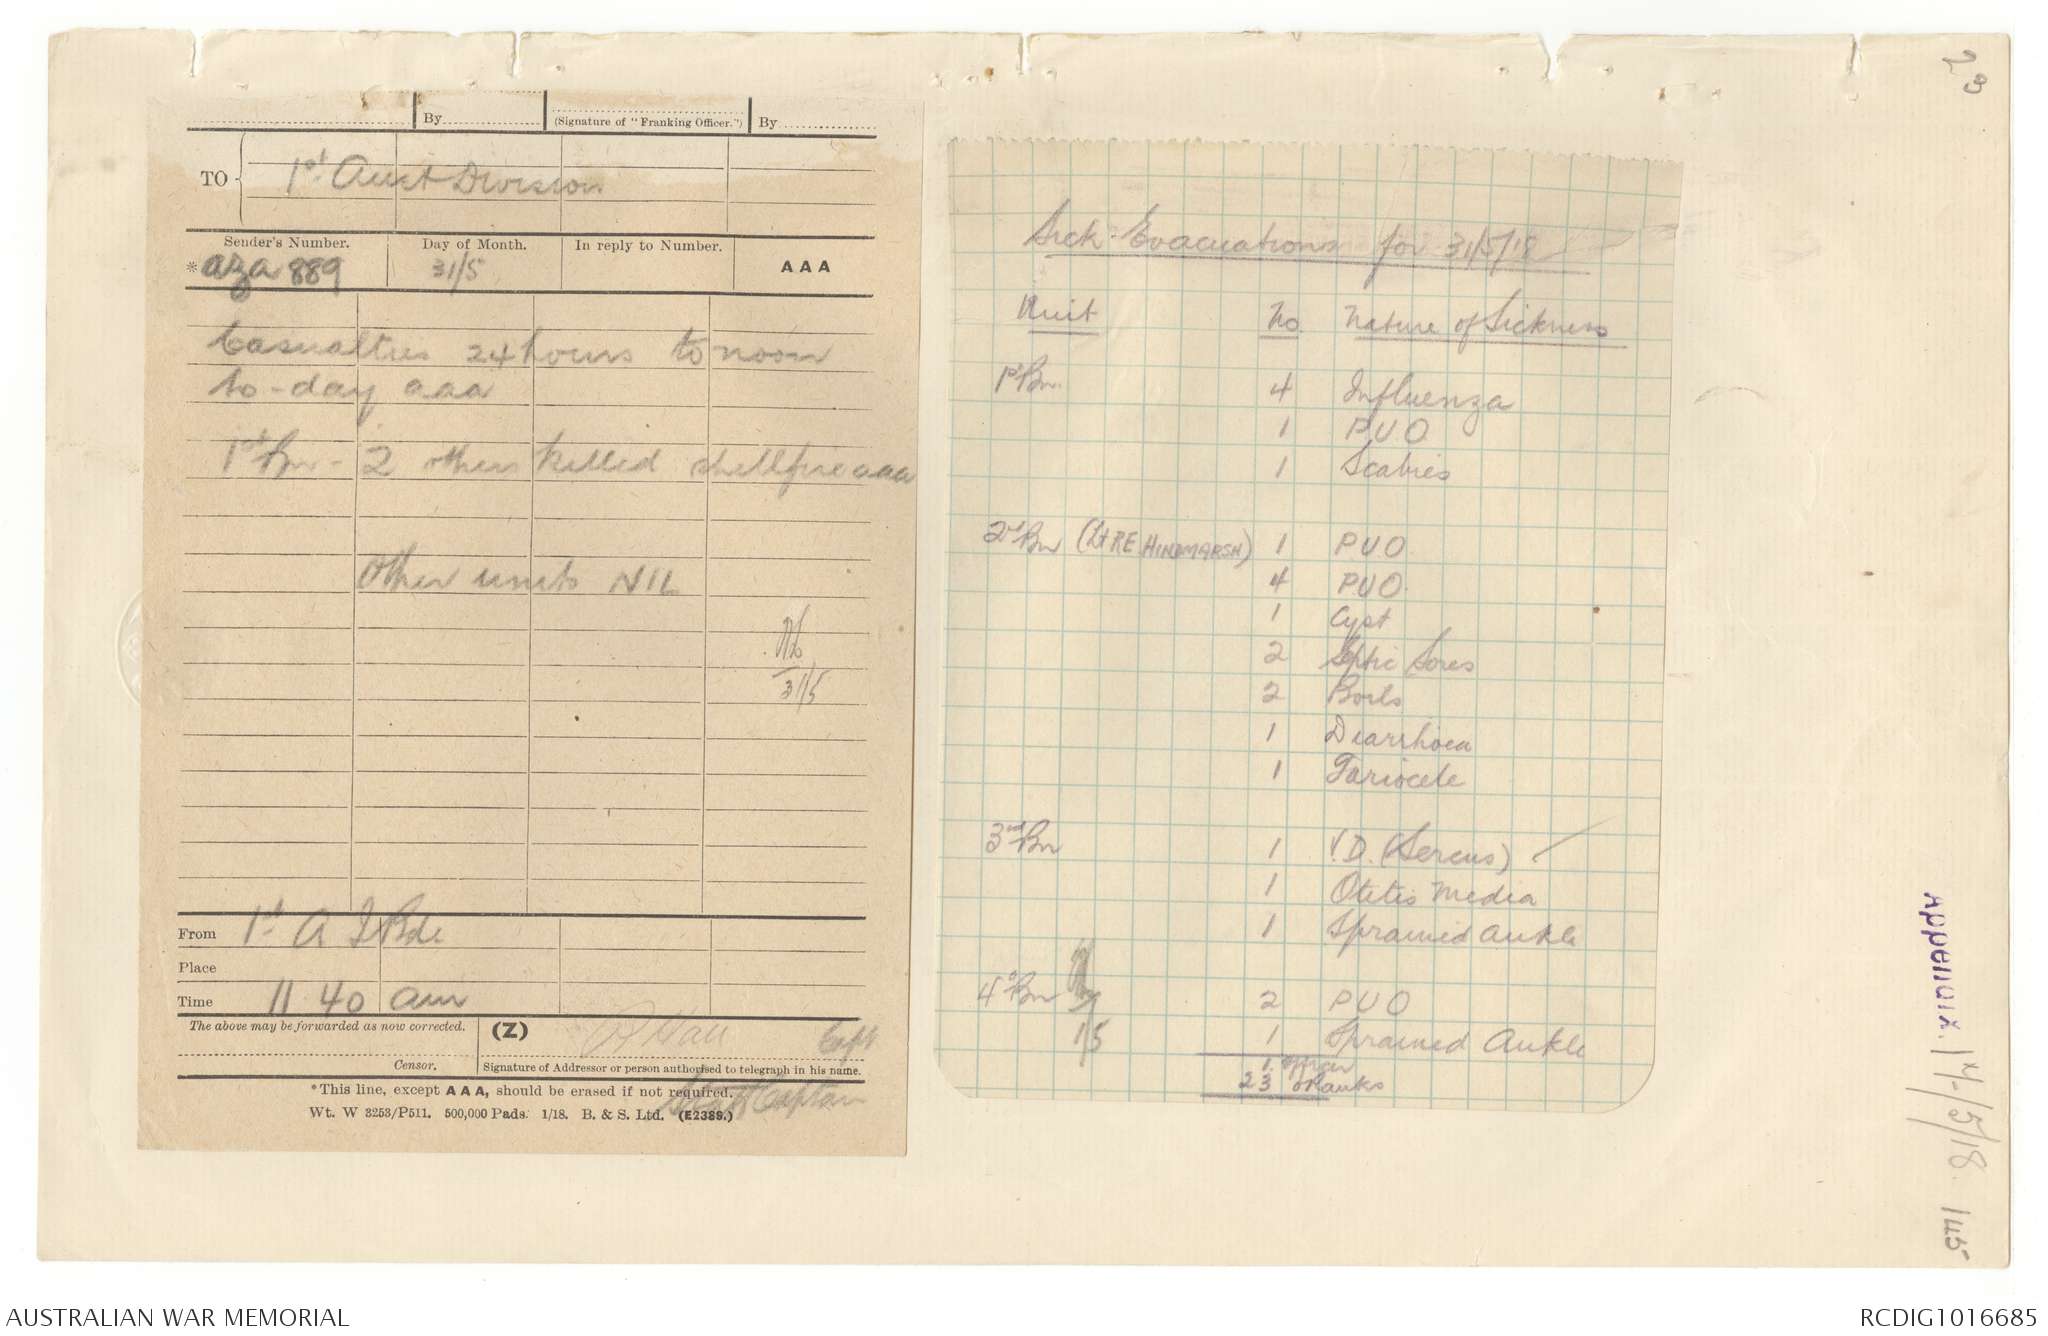 23
By
(Signature of "Franking Officer.") By
TO 1st Aust Division
Sender's Number. Day of Month. In reply to Number. AAA
*aza 889 31/5
Casualties 24 hours to noon
to-day aaa
1st Bn - 2 others killed shellfire aaa
Other units NIL
31/5
From 1st A I Bde
Place
Time 11 40 am
The above may be forwarded as now corrected. (Z) Capt
Censor. Signature of Addressor or person authorised to telegraph in his name.
*This line, except AAA, should be erased if not required.
Staff Captain
Wt. W 3253/P511. 500,000 Pads. 1/18. B. & S. Ltd. (E2388.)
Sick Evacuations for 31/5/18
Unit No. Nature of Sickness
1st Bn. 4 Influenza
1 PUO
1 Scabies
2nd Bn (Lt RE HINDMARSH) 1 PUO
4 PUO
1 Cyst
2 Septic Sores
2 Boils
1 Diarrhoea
1 Variocele
3rd Bn 1 V.D. (Sercus)
1 Otitis Media
1 Sprained Ankle
4th Bn 2 PUO
1/5 1 Sprained Ankle
1 Officer
23 ORanks
Appendix. 1M/5/18 145
AUSTRALIAN WAR MEMORIAL RCDIG1016685